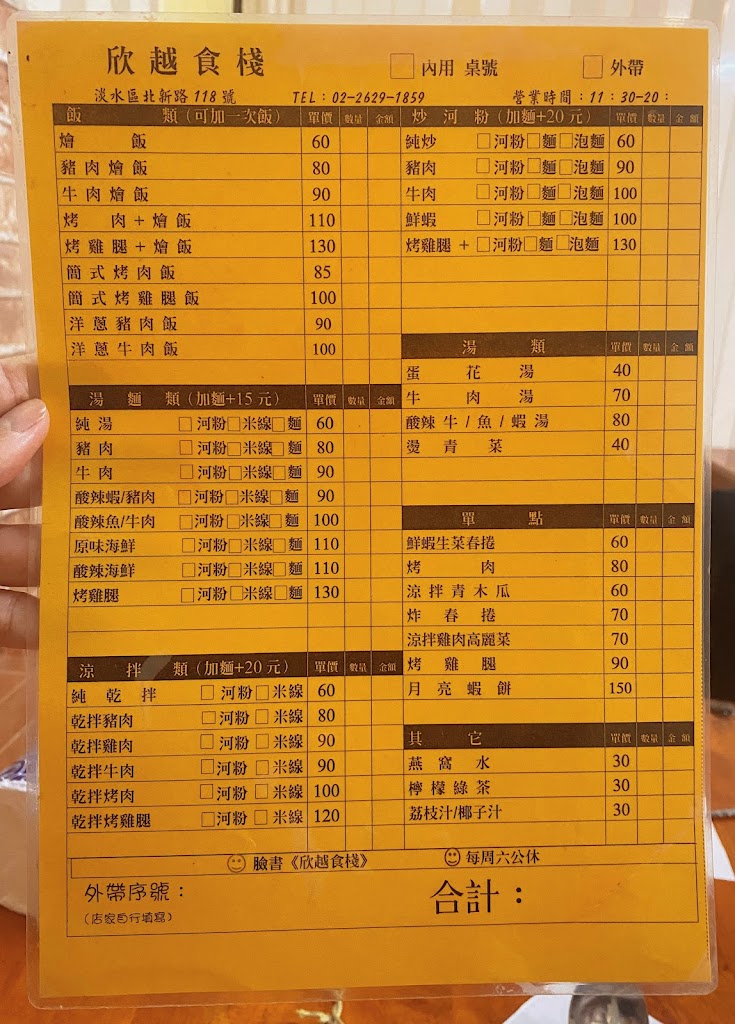 欣越食棧 □內用 桌號 □外帶
淡水區北新路118號 TEL：02-2629-1859 營業時間：11：30-20：
飯類(可加一次飯) 單價 數量 金額
燴飯 60
豬肉燴飯 80
牛肉燴飯 90
烤肉+燴飯 110
烤雞腿+燴飯 130
簡式烤肉飯 85
簡式烤雞腿飯 100
洋蔥豬肉飯 90
洋蔥牛肉飯 100
湯麵類(加麵+15元) 單價 數量 金額
純湯 □河粉□米線□麵 60
豬肉 □河粉□米線□麵 80
牛肉 □河粉□米線□麵 90
酸辣蝦/豬肉 □河粉□米線□麵 90
酸辣魚/牛肉 □河粉□米線□麵 100
原味海鮮 □河粉□米線□麵 110
酸辣海鮮 □河粉□米線□麵 110
烤雞腿 □河粉□米線□麵 130
涼拌類(加麵+20元) 單價 數量 金額
純乾拌 □河粉□米線 60
乾拌豬肉 □河粉□米線 80
乾拌雞肉 □河粉□米線 90
乾拌牛肉 □河粉□米線 90
乾拌烤肉 □河粉□米線 100
乾拌烤雞腿 □河粉□米線 120
炒河粉(加麵+20元) 單價 數量 金額
純炒 □河粉□麵□泡麵 60
豬肉 □河粉□麵□泡麵 90
牛肉 □河粉□麵□泡麵 100
鮮蝦 □河粉□麵□泡麵 100
烤雞腿+□河粉□麵□泡麵 130
湯類 單價 數量 金額
蛋花湯 40
牛肉湯 70
酸辣牛/魚/蝦湯 80
燙青菜 40
單點 單價 數量 金額
鮮蝦生菜春捲 60
烤肉 80
涼拌青木瓜 60
炸春捲 70
涼拌雞肉高麗菜 70
烤雞腿 90
月亮蝦餅 150
其它 單價 數量 金額
燕窩水 30
檸檬綠茶 30
荔枝汁/椰子汁 30
臉書《欣越食棧》 每周六公休
外帶序號：
(店家自行填寫)
合計：